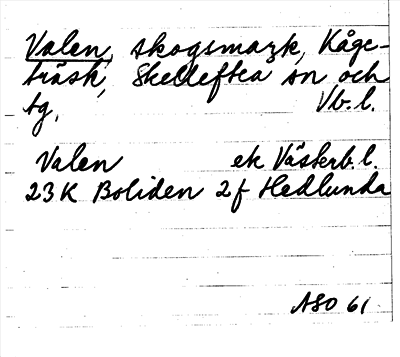 Valen, skogsmark, Kåge-
träsk, Skellefteå sn och
tg. Vb.l.
Valen ek Västerb.l.
23K Boliden 2f Hedlunda
ASO 61